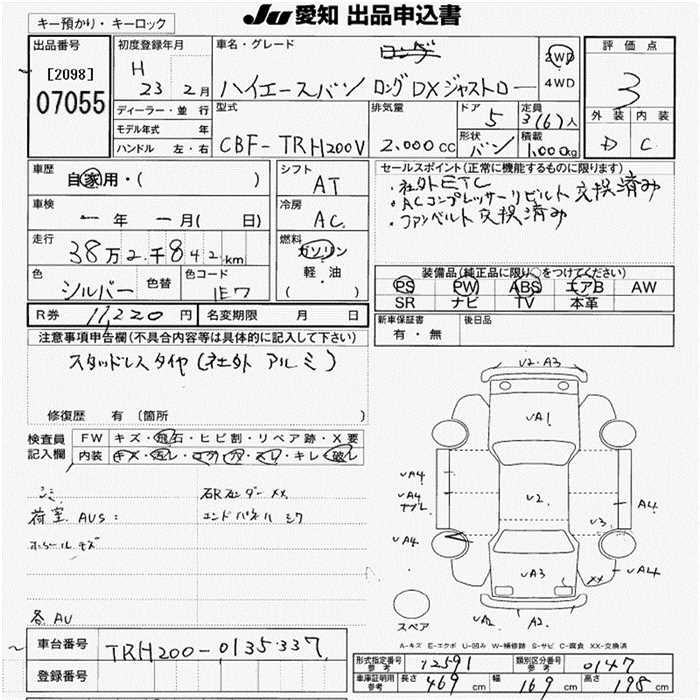 JU 愛知 出品申込書
キー預かり・キーロック
出品番号
[2098]
07055
初度登録年月
H
23 2月
ディーラー・並 行
モデル年式 年
ハンドル 左・右
車名・グレード
ロング
ハイエースバン ロングDXジャストロー
2WD
4WD
評価点
3
外装 内装
D C
型式
CBF-TRH200V
排気量
2,000cc
ドア
5
定員
3(6)人
形状
バン
積載
1,000kg
車歴
自家用・( )
車検
ー年 ー月( 日)
走行
38万2千842km
色
シルバー
色替
色コード
1E7
シフト
AT
冷房
AC
燃料
ガソリン
軽・油
( )
セールスポイント(正常に機能するものに限ります)
・社外ETC
・ACコンプレッサーリビルト交換済み
・ファンベルト交換済み
装備品(純正品に限り○をつけてください)
PS PW ABS エアB AW
SR ナビ TV 本革
R券 11,220円
名変期限 月 日
新車保証書
有・無
後日品
注意事項申告欄(不具合内容等は具体的に記入して下さい)
スタッドレスタイヤ(社外アルミ)
修復歴 有(箇所 )
検査員
記入欄
FW キズ・飛石・ヒビ割・リペア跡・X要
内装 キズ・汚レ・コゲ・穴・スレ・キレ・破レ
シミ
荷室 AUS:
ホイールキズ
各AU
エンドパネルミク
V2・A3
VA1
VA4
VA4
V2
A4
V3
VA4
VA3
XX
VA4
VA2
A2
スペア
A-キズ E-エクボ U-凹み W-補修跡 S-サビ C-腐食 XX-交換済
車台番号
TRH200-0135337
登録番号
型式指定番号
参考
12591
類別区分番号
参考
0147
車庫証明用
参考
長さ 469cm 幅 169cm 高さ 198cm